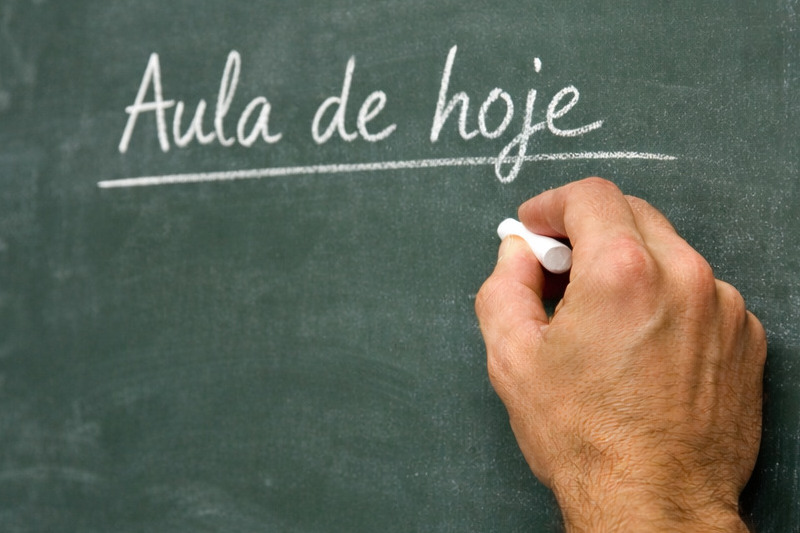 Aula de hoje